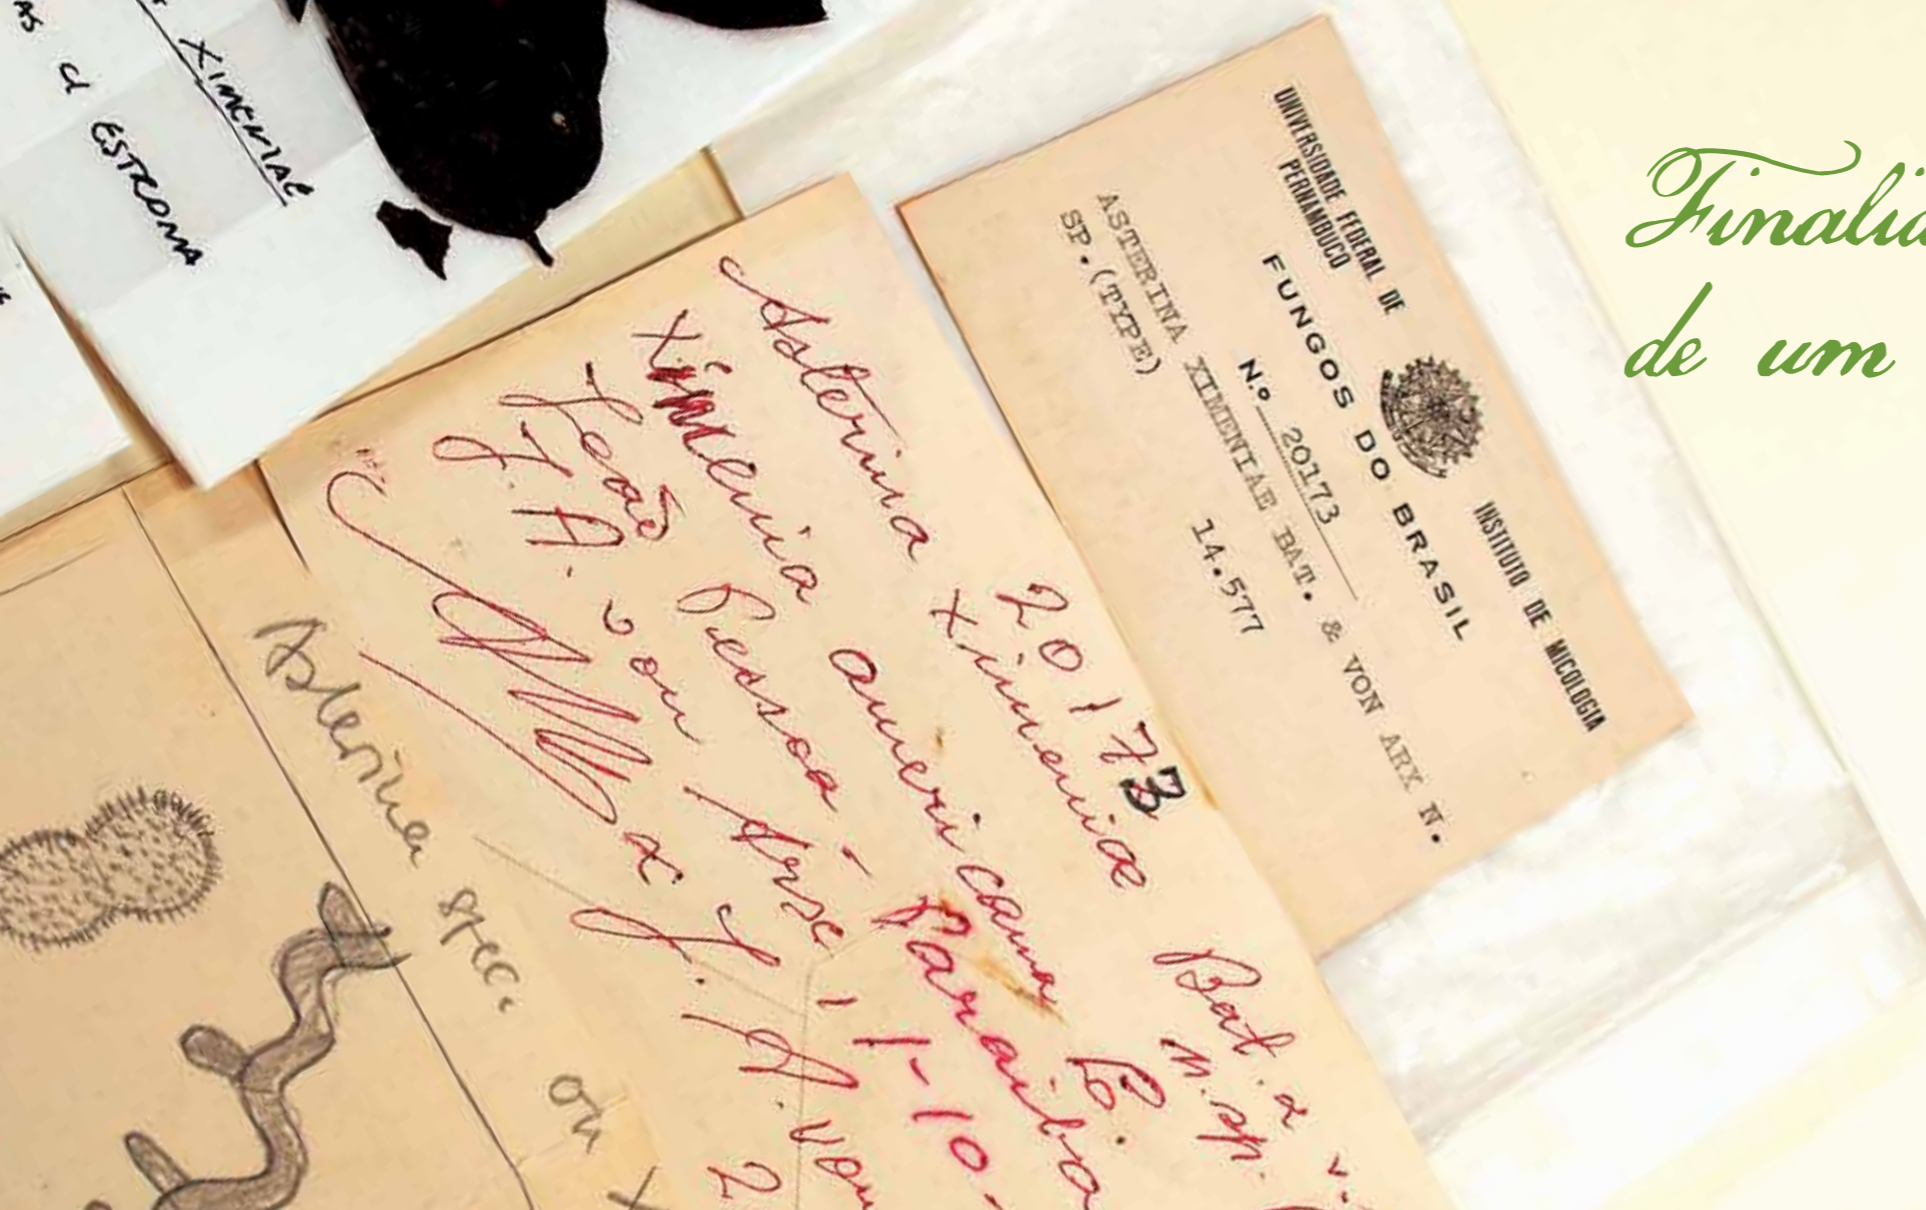 XIMENIAE
ESTROMA
UNIVERSIDADE FEDERAL DE
PERNAMBUCO
INSTITUTO DE MICOLOGIA
FUNGOS DO BRASIL
N.o 20173
ASTERINA XIMENIAE BAT. & VON ARX N.
SP.(TYPE)
14.577
20173
Asterina ximeniae Bat. & v.
n. sp.
Ximenia americana
João Pessoa - Paraiba
J. A. von Arx 11-10-
J. A. von
Asterina spec. on
de um